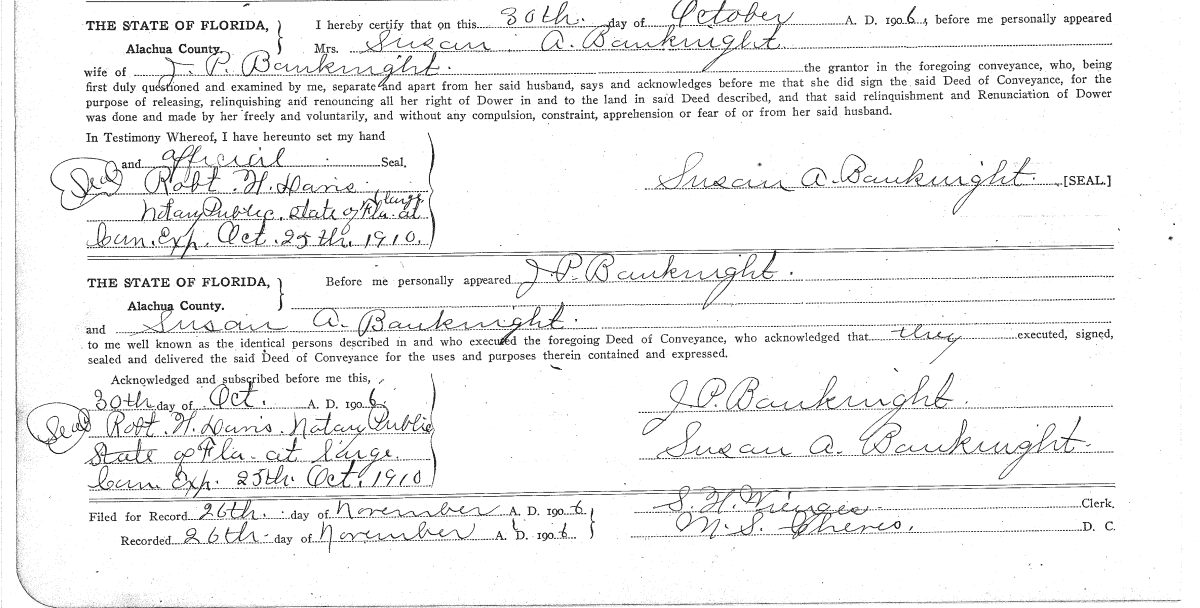 THE STATE OF FLORIDA, } I hereby certify that on this 30th. day of October A. D. 1906., before me personally appeared
Alachua County. Mrs. Susan A. Bauknight
wife of J. P. Bauknight. the grantor in the foregoing conveyance, who, being
first duly questioned and examined by me, separate and apart from her said husband, says and acknowledges before me that she did sign the said Deed of Conveyance, for the
purpose of releasing, relinquishing and renouncing all her right of Dower in and to the land in said Deed described, and that said relinquishment and Renunciation of Dower
was done and made by her freely and voluntarily, and without any compulsion, constraint, apprehension or fear of or from her said husband.
In Testimony Whereof, I have hereunto set my hand
and official Seal.
(Seal) Robt. H. Davis. Susan A. Bauknight. [SEAL.]
Notary Public. State of Fla. at large
Com. Exp. Oct. 25th. 1910.
THE STATE OF FLORIDA, } Before me personally appeared J. P. Bauknight.
Alachua County.
and Susan A. Bauknight.
to me well known as the identical persons described in and who executed the foregoing Deed of Conveyance, who acknowledged that they executed, signed,
sealed and delivered the said Deed of Conveyance for the uses and purposes therein contained and expressed.
Acknowledged and subscribed before me this,
30th day of Oct. A. D. 1906. J. P. Bauknight.
(Seal) Robt. H. Davis. Notary Public
State of Fla. at large. Susan A. Bauknight.
Com. Exp. 25th. Oct. 1910
Filed for Record 26th. day of November A. D. 1906. S. H. Clerk.
Recorded 26th. day of November A. D. 1906 M. S. Cheves. D. C.